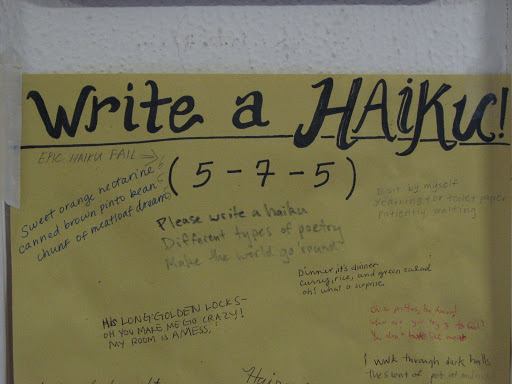 Write a HAiKU!
EPIC HAIKU FAIL
(5-7-5)
Sweet orange nectarine
canned brown pinto bean
chunk of meatloaf dream
Please write a haiku
Different types of poetry
Make the world go 'round
by myself
yearning for toilet paper
Patiently waiting
Dinner, it's dinner
curry, rice, and green salad
oh! what a surprise.
His LONG GOLDEN LOCKS-
OH YOU MAKE ME GO CRAZY!
MY ROOM IS A MESS.
I walk through dark halls
The scent of pot at